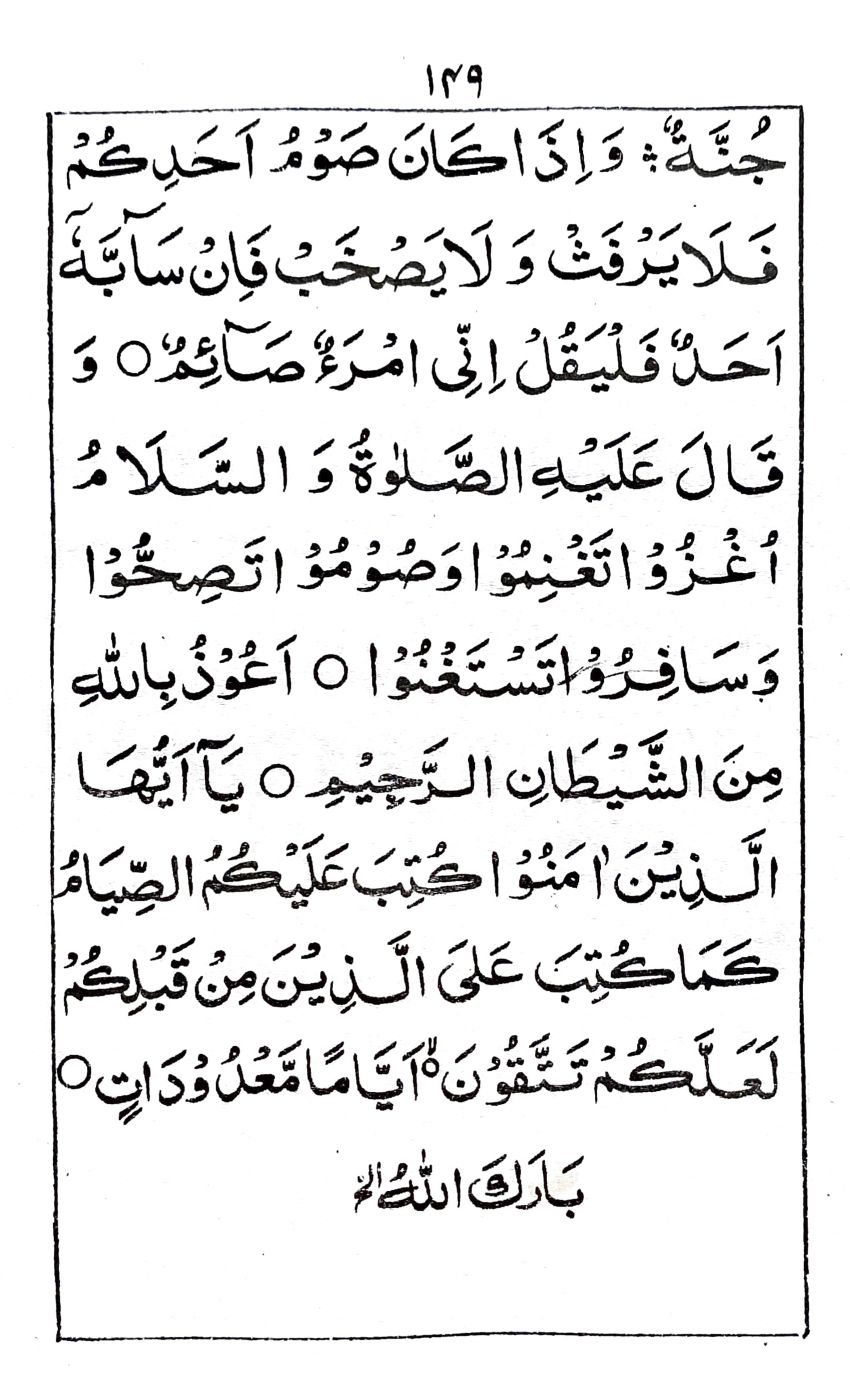 ۱۴۹
جُنَّةٌ؞ وَاِذَا كَانَ صَوْمُ اَحَدِكُمْ
فَلَا يَرْفَثْ وَلَا يَصْخَبْ فَاِنْ سَآبَّهٗٓ
اَحَدٌ فَلْيَقُلْ اِنِّى امْرَءٌ صَآئِمٌ ○ وَ
قَالَ عَلَيْهِ الصَّلٰوةُ وَ السَّلَامُ
اُغْزُوْا تَغْنِمُوْا وَصُوْمُوْا تَصِحُّوْا
وَسَافِرُوْا تَسْتَغْنُوْا ○ اَعُوْذُ بِاللّٰهِ
مِنَ الشَّيْطَانِ الرَّجِيْمِ ○ يَآ اَيُّهَا
الَّذِيْنَ اٰمَنُوْا كُتِبَ عَلَيْكُمُ الصِّيَامُ
كَمَا كُتِبَ عَلَى الَّذِيْنَ مِنْ قَبْلِكُمْ
لَعَلَّكُمْ تَتَّقُوْنَ ۙ اَيَّامًا مَّعْدُوْدَاتٍ ○
بَارَكَ اللّٰهُ الخ